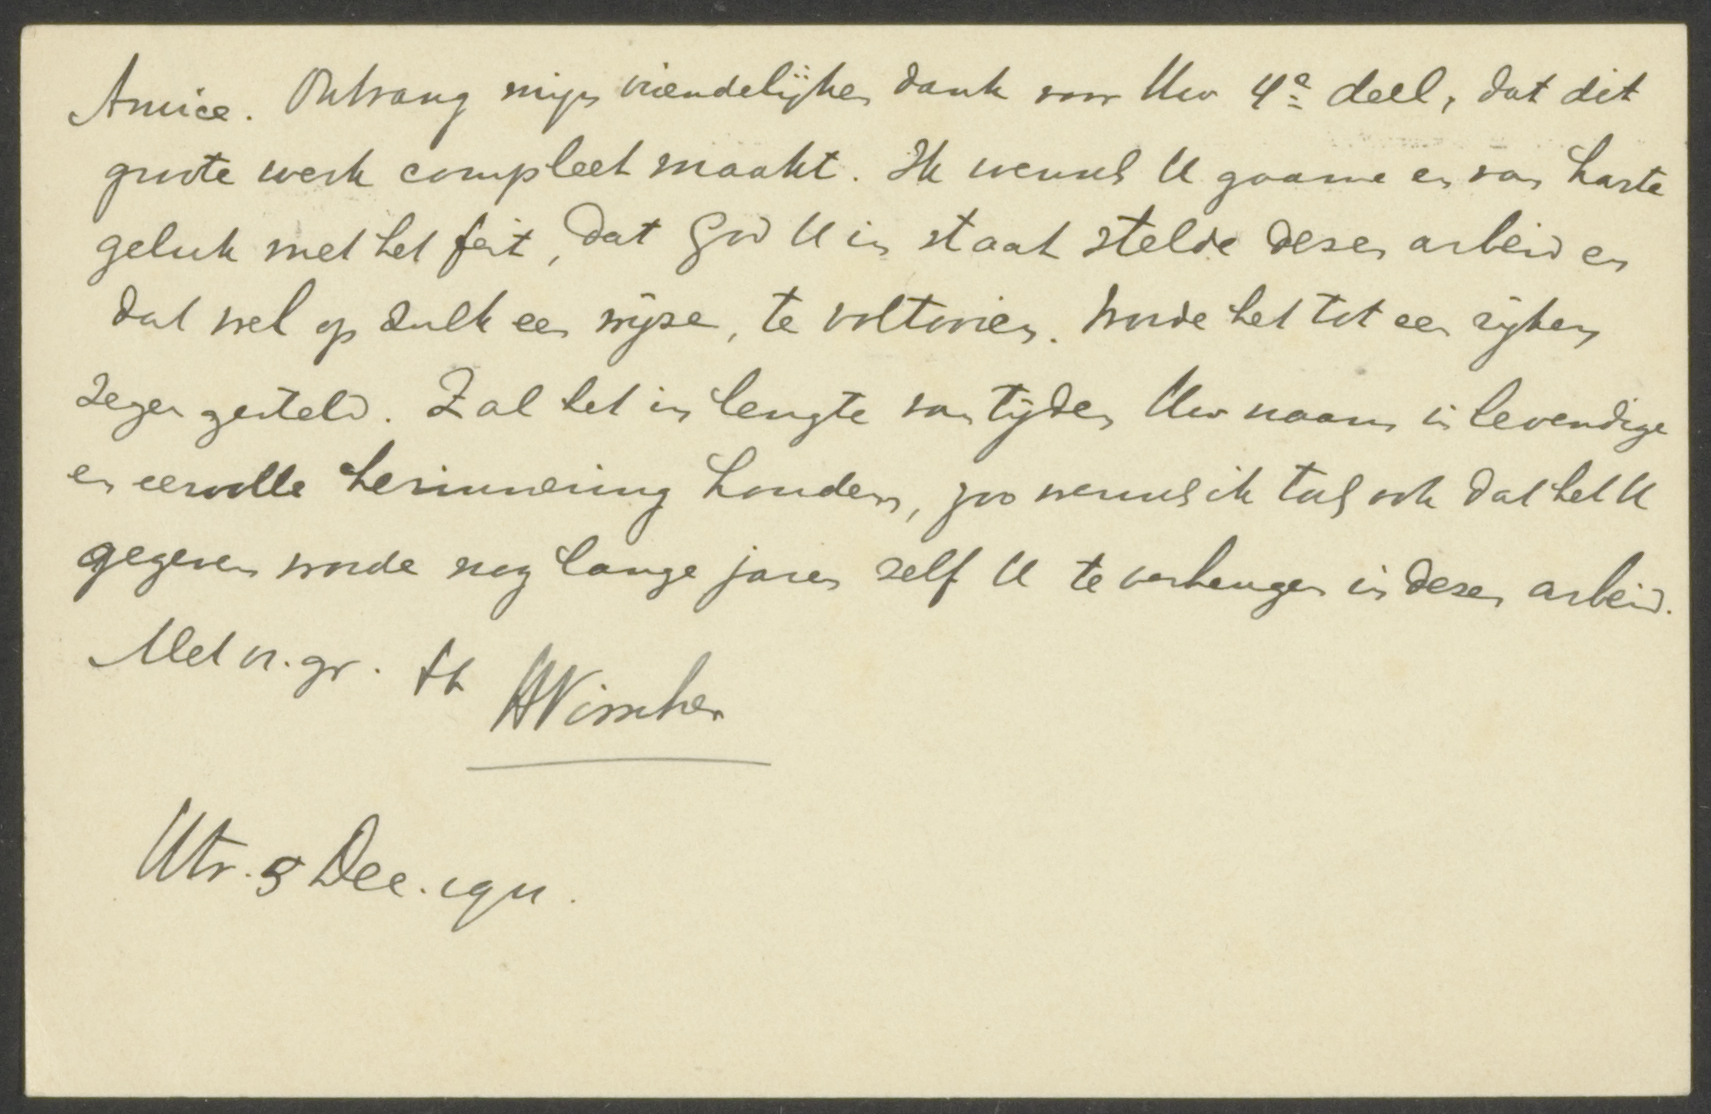 Amice. Ontvang mijn vriendelijken dank voor Uw 4e deel, dat dit
groote werk compleet maakt. Ik wensch U gaarne en van harte
geluk met het feit, dat God U in staat stelde dezen arbeid en
dat wel op zulk een wijze, te voltooien. Worde het tot een rijken
zegen gesteld. Zal het in lengte van tijden Uw naam in levendige
en eervolle herinnering houden, zoo wensch ik toch ook dat het U
gegeven worde nog lange jaren zelf U te verheugen in dezen arbeid.
Met vr. gr. tt HVisscher
Utr. 5 Dec. 1911.